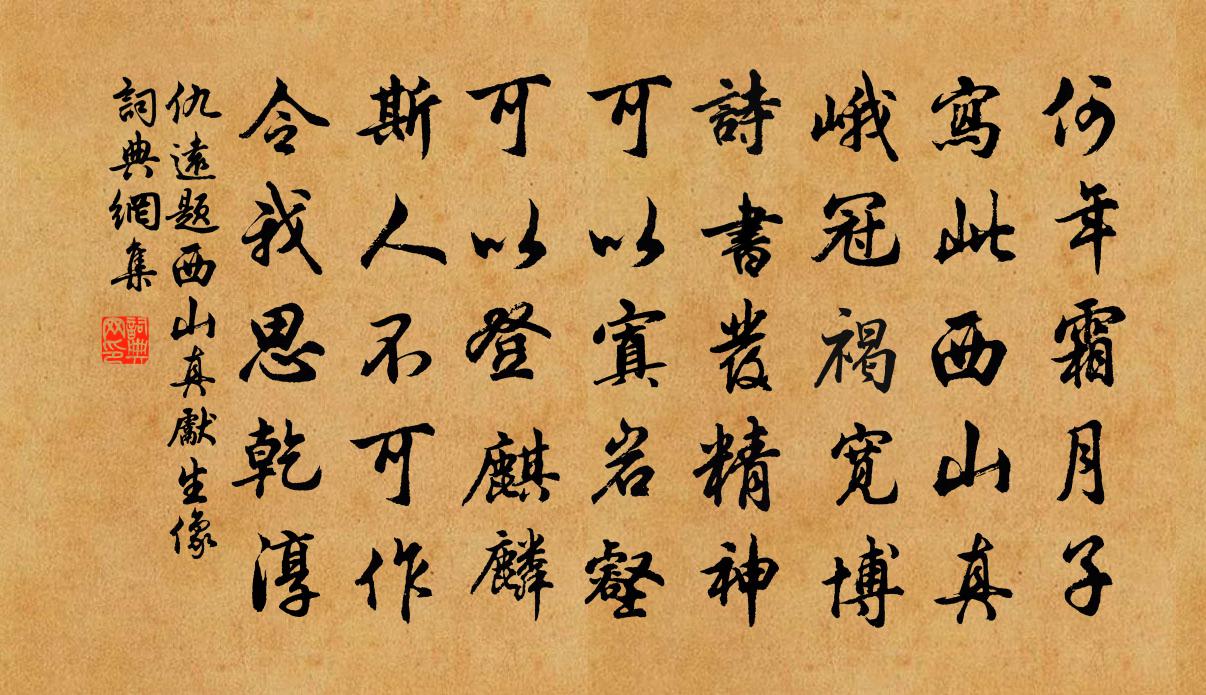 何年霜月子
寫此西山真
峨冠褐寬博
詩書發精神
可以寘岩壑
可以登麒麟
斯人不可作
令我思乾淳
仇遠題西山真獻生像
詞典網集
詞典網印